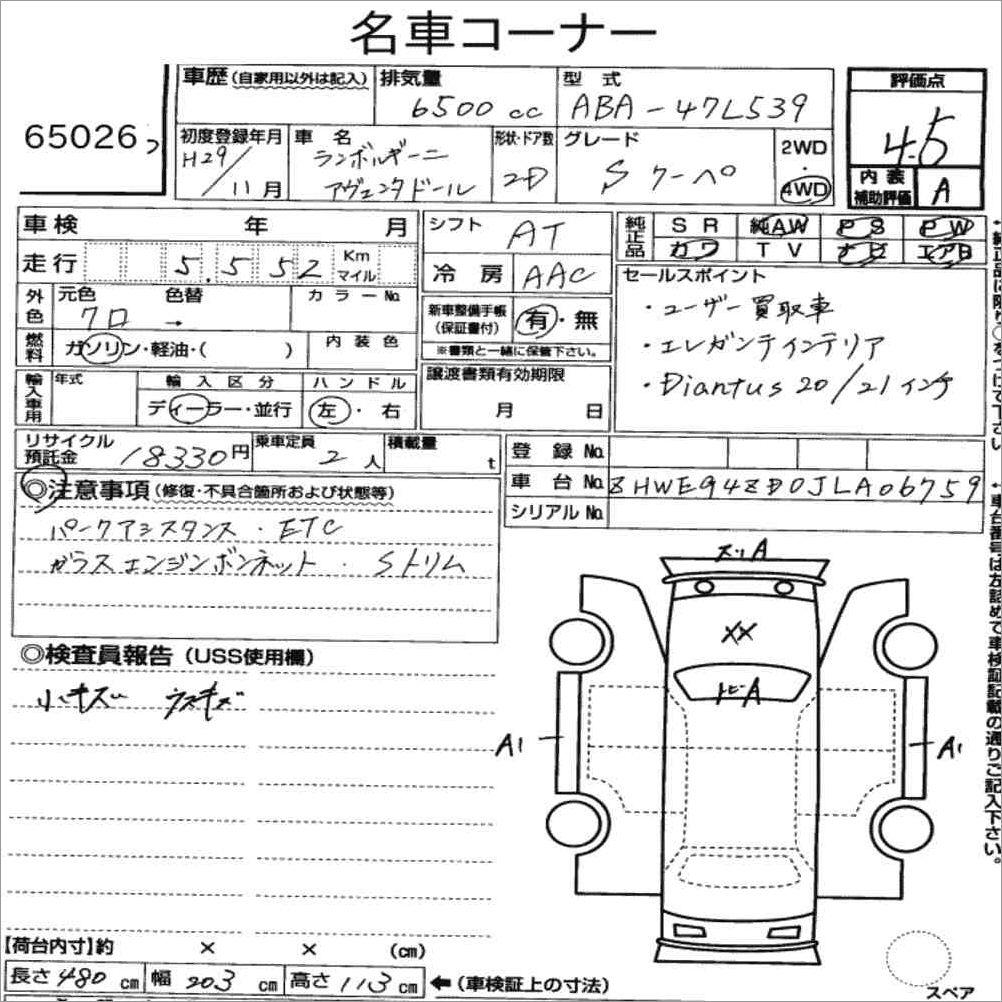 名車コーナー
65026
車歴(自家用以外は記入)
排気量
6500 cc
型式
ABA-47L539
評価点
4.5
内装補助評価 A
初度登録年月
H29/11月
車名
ランボルギーニ
アヴェンタドール
形状・ドア数
2D
グレード
S クーペ
2WD
・
4WD
車検 年 月
シフト AT
純正品
SR 純AW PS PW
カワ TV ナビ エアB
走行 5.552 Km マイル
冷房 AAC
セールスポイント
・ユーザー買取車
・エレガンテインテリア
・Diantus 20/21インチ
外色
元色 色替 カラーNo.
クロ →
新車整備手帳(保証書付) 有・無
※書類と一緒に保管下さい。
燃料 ガソリン・軽油・( )
内装色
譲渡書類有効期限
月 日
輸入車用
年式
輸入区分
ディーラー・並行
ハンドル
左・右
リサイクル預託金 18330円
乗車定員 2人
積載量 t
登録No.
車台No. ZHWEG4ZD0JLA06759
シリアルNo.
◎注意事項(修復・不具合箇所および状態等)
パークアシスタンス・ETC
ガラスエンジンボンネット・Sトリム
◎検査員報告(USS使用欄)
小キズ ウスキズ
スリA
XX
トビA
A1
A1
【荷台内寸】約 × × (cm)
長さ480cm 幅203cm 高さ113cm ←(車検証上の寸法)
スペア
・純正品に限り○をつけて下さい
・車台番号は左詰めで車検証記載の通りご記入下さい。